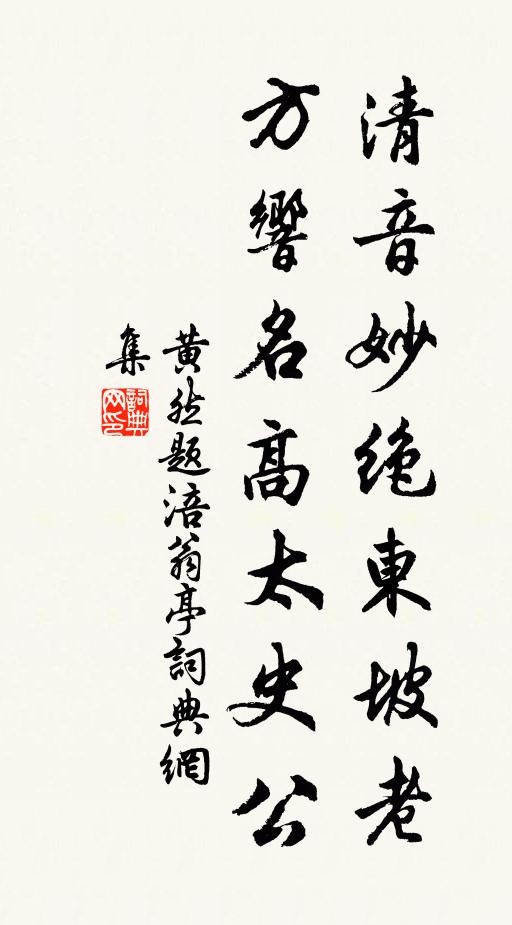 清音妙绝東坡老
方響名高太史公
黄然题涪翁亭詞典網
集
詞典网印